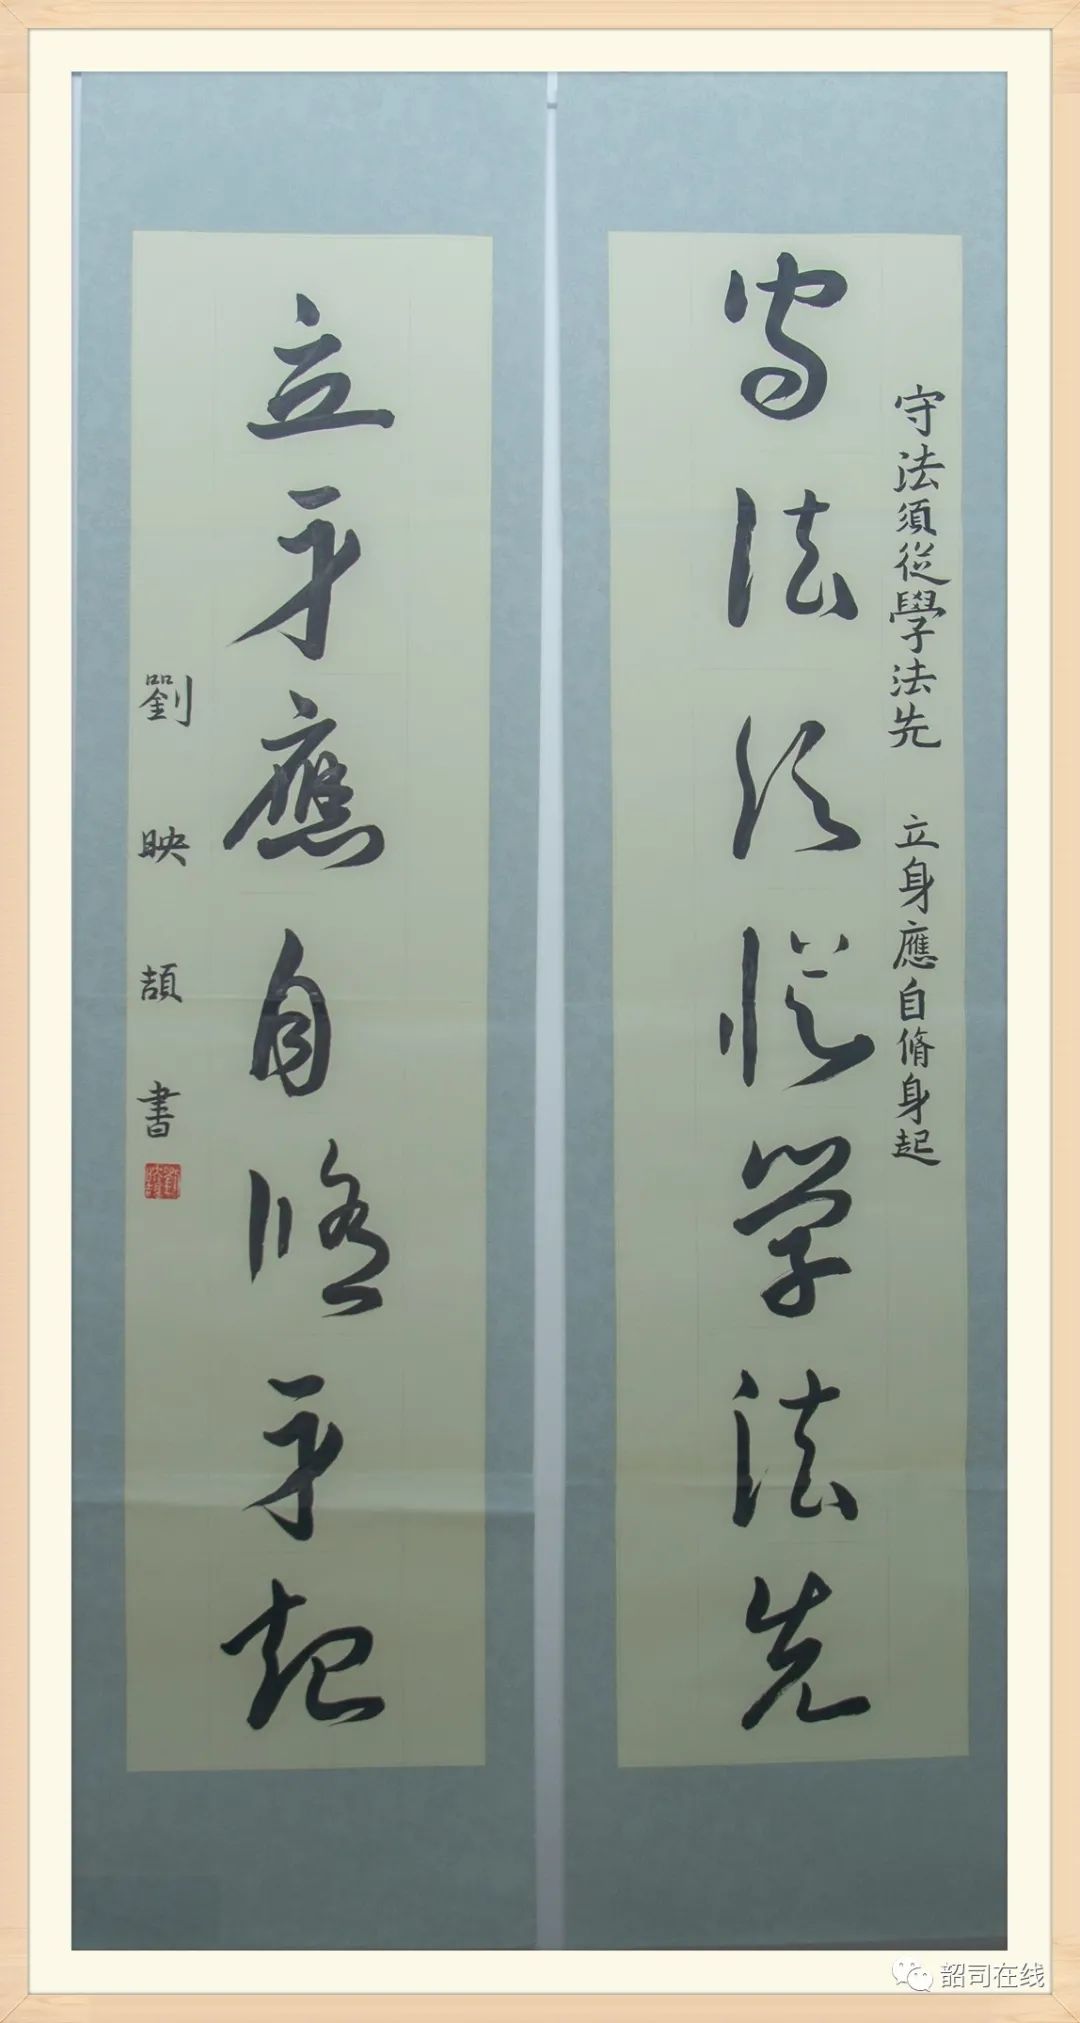 守法須從學法先
守法須從學法先 立身應自脩身起
立身應自脩身起
劉映頡書
韶司在线